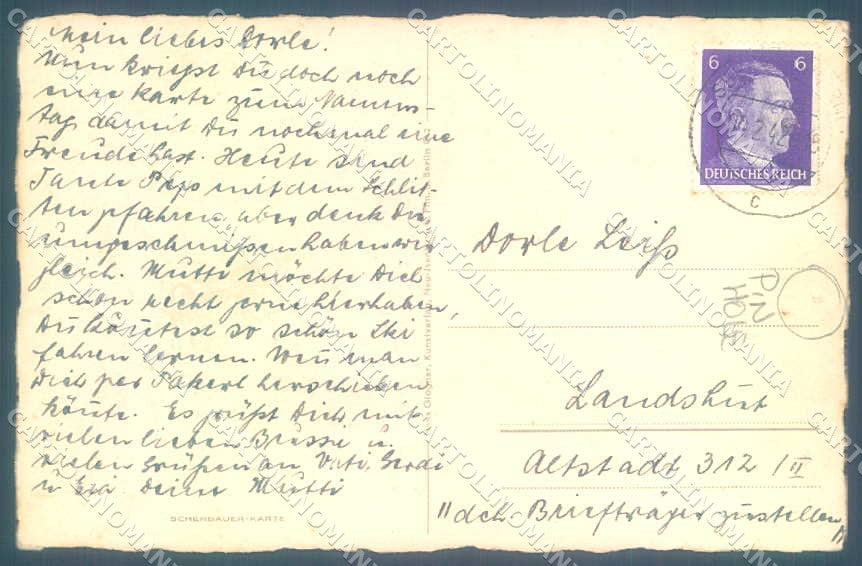 Mein liebes Dorle!
Nun kriegst Du doch noch
eine Karte zum Namens-
tag damit Du nochmal eine
Freude hast. Heute sind
Tante Peps mit dem Schlit-
ten gefahren aber denk Dir
umgeschmissen haben wir
gleich. Mutti möchte Dich
schon recht gerne hierhaben,
Du könntest so schön Ski
fahren lernen. Wenn man
Dich per Pakerl herschicken
könnte. Es grüßt Dich mit
vielen lieben Bussie u.
vielen Grüßen an Vati, Gerdi
u Deine Mutti
SCHERBAUER-KARTE
6 6
DEUTSCHES REICH
c
Dorle Leiß
PIN
HOLE
Landshut
Altstadt 312 / II
"dch. Briefträger zustellen"
CARTOLINOMANIA